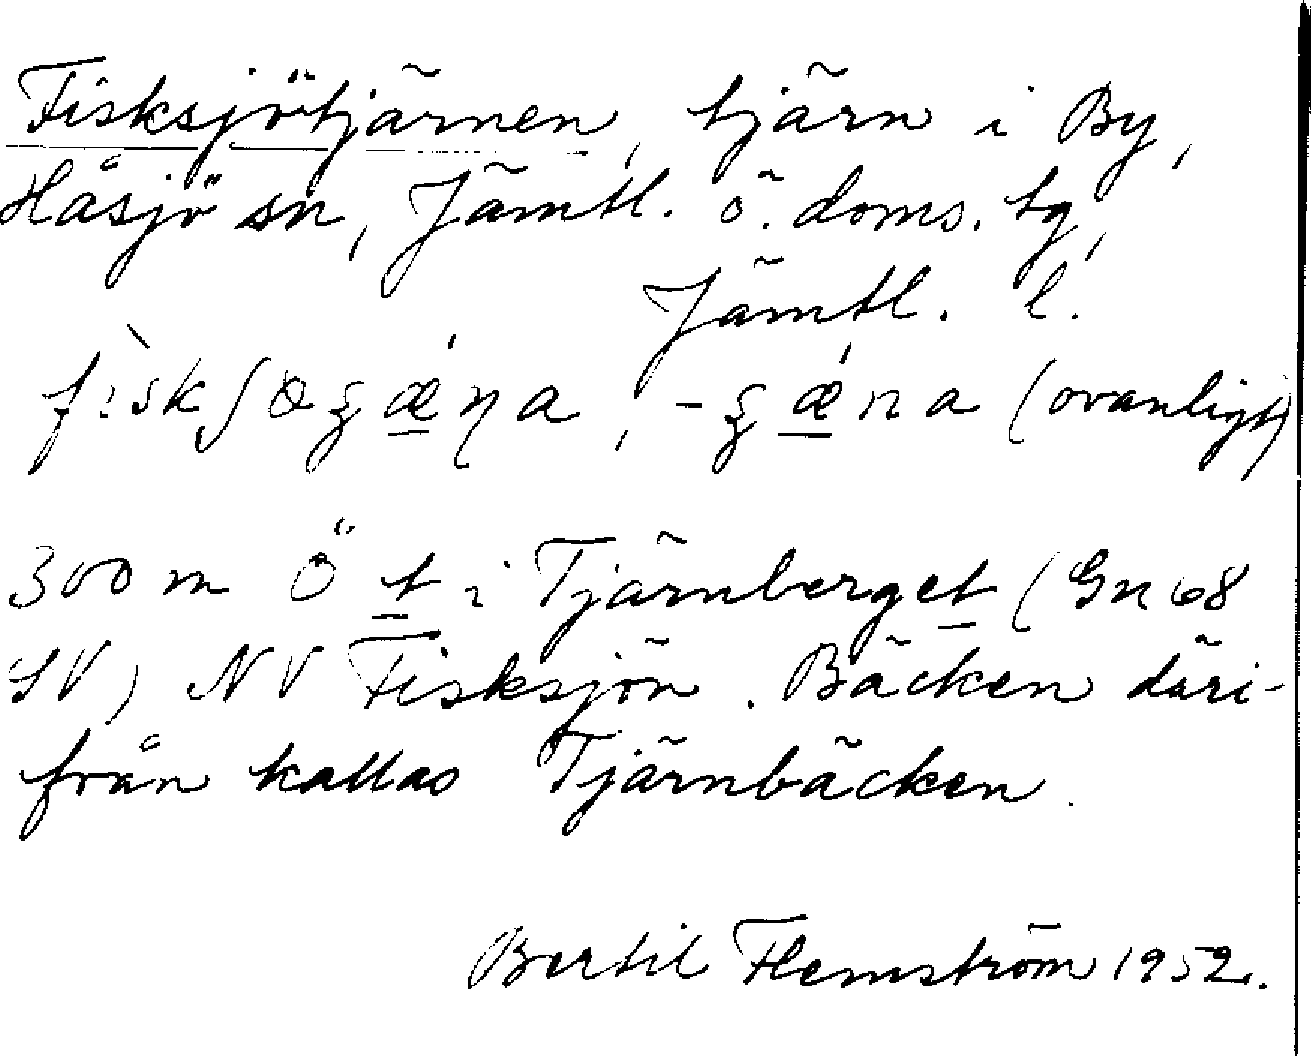 Fisksjötjärnen, tjärn i By,
Håsjö sn, Jämtl. ö. doms. tg,
Jämtl. l.
(ovanligt)
300 m Ö t i Tjärnberget (Gn 68
SV) NV Fisksjön. Bäcken däri-
från kallas Tjärnbäcken.
Bertil Flemström 1952.